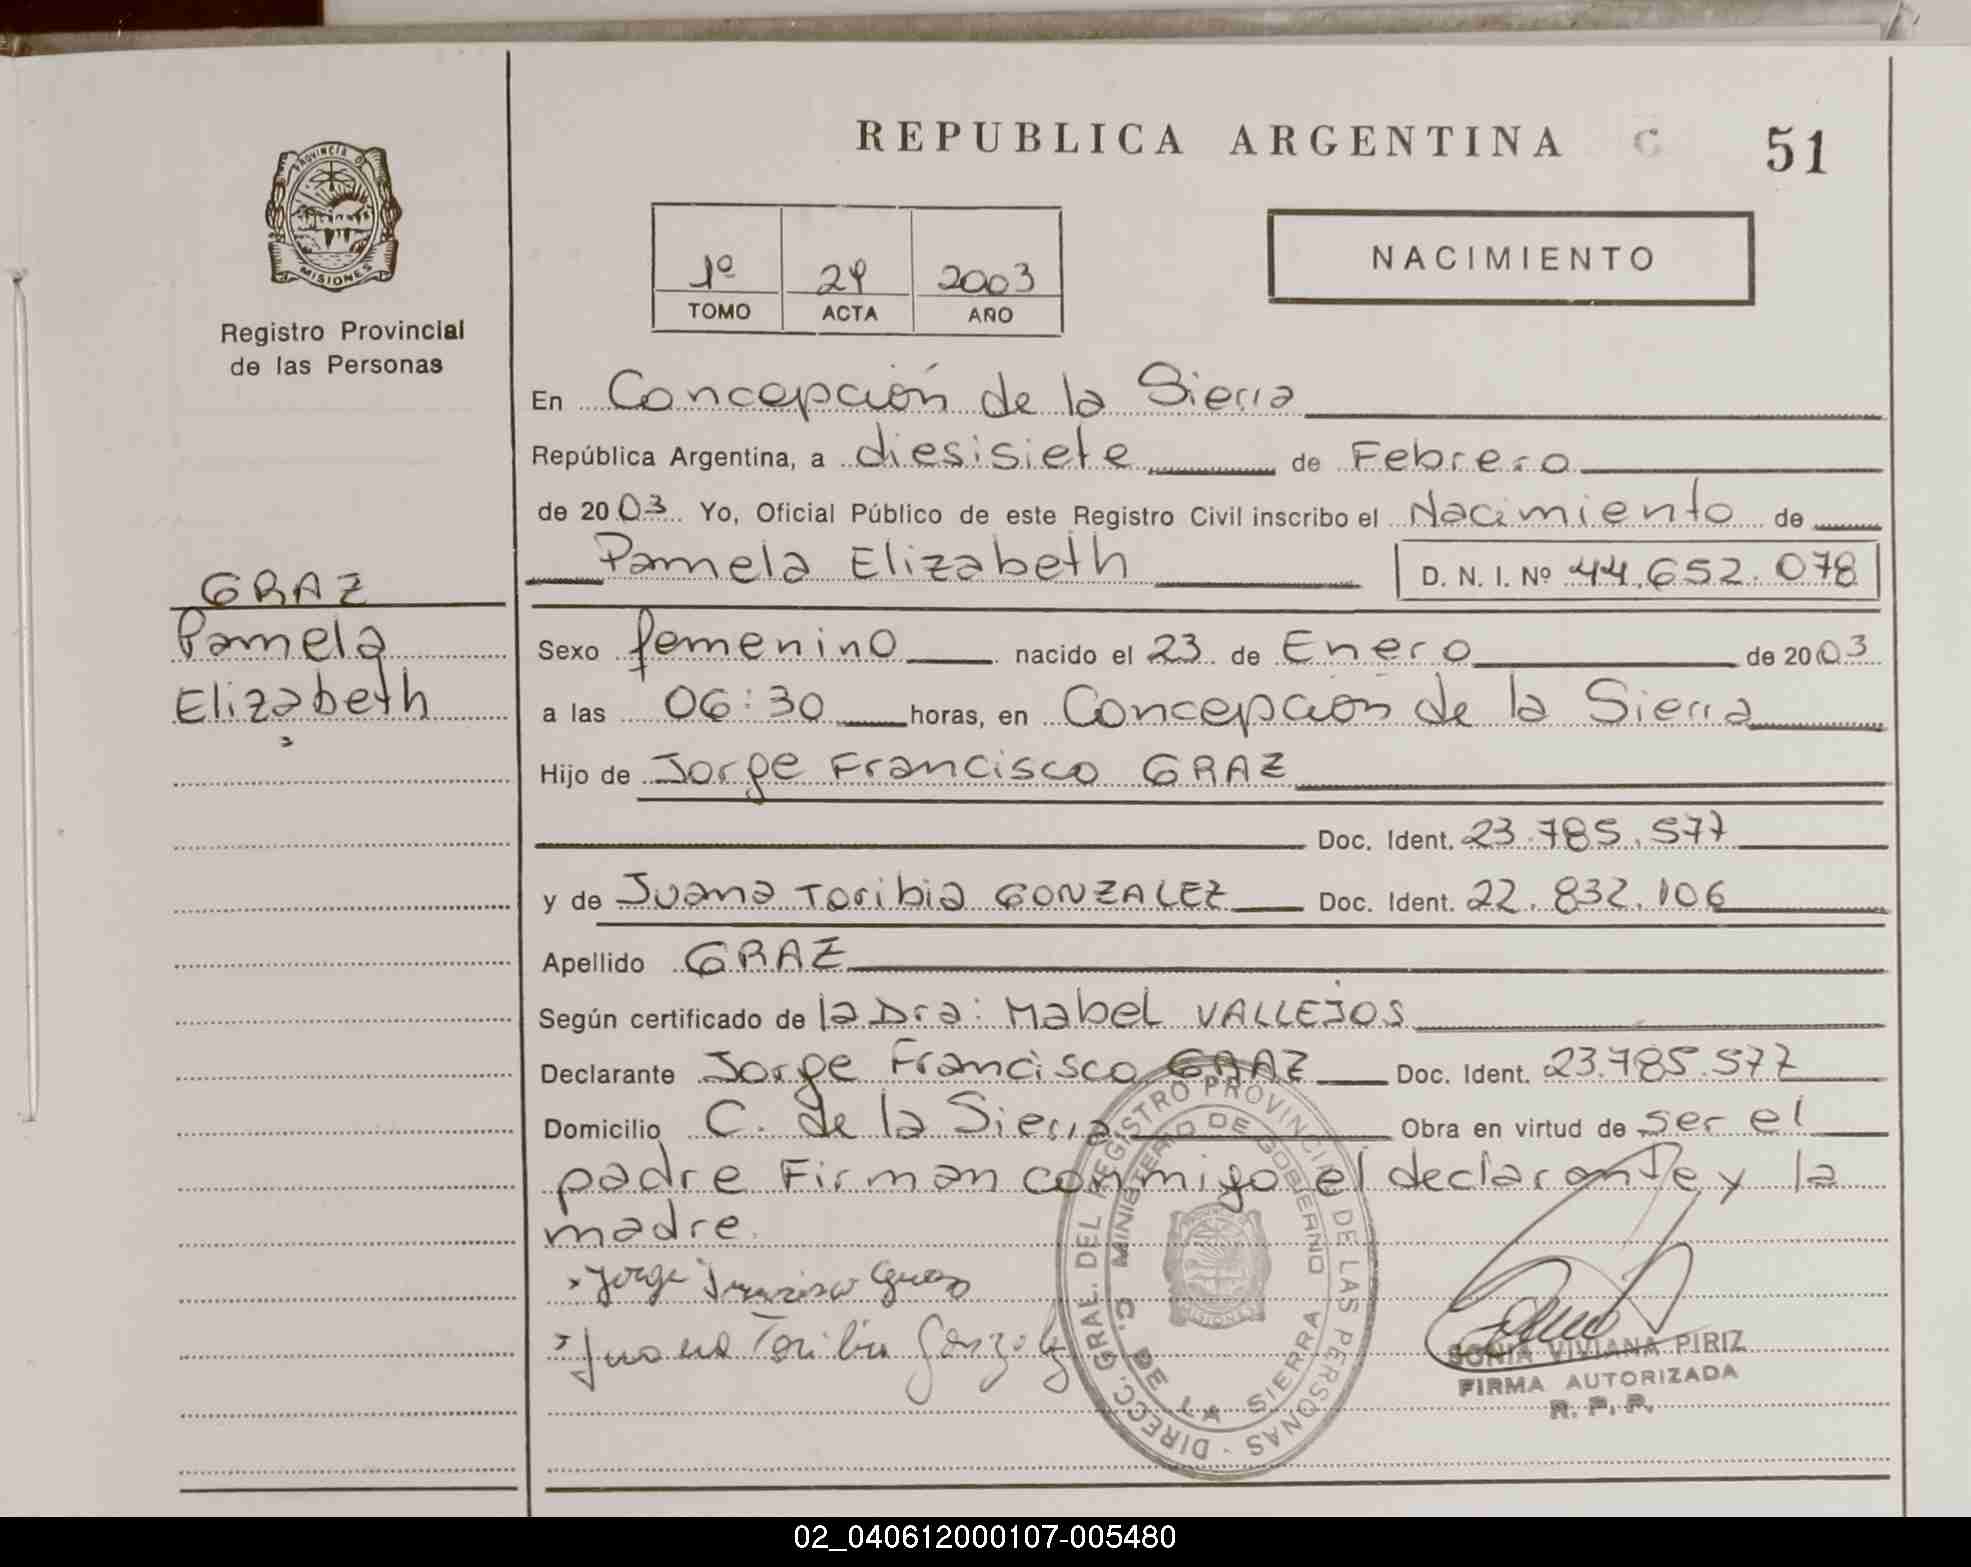 REPUBLICA ARGENTINA C 51
PROVINCIA DE
MISIONES
Registro Provincial
de las Personas
1º 29 2003
TOMO ACTA AÑO
NACIMIENTO
En Concepción de la Sierra
República Argentina, a diesisiete de Febrero
de 2003 Yo, Oficial Público de este Registro Civil inscribo el Nacimiento de
Pamela Elizabeth D. N. I. Nº 44.652.078
GRAZ
Pamela
Elizabeth
Sexo femenino nacido el 23 de Enero de 2003
a las 06:30 horas, en Concepción de la Sierra
Hijo de Jorge Francisco GRAZ
Doc. Ident. 23.785.577
y de Juana Toribia GONZALEZ Doc. Ident. 22.832.106
Apellido GRAZ
Según certificado de la Dra: Mabel VALLEJOS
Declarante Jorge Francisco GRAZ Doc. Ident. 23.785.577
Domicilio C. de la Sierra Obra en virtud de ser el
padre Firman conmigo el declarante y la
madre.
Jorge Francisco Graz
Juana Toribia Gonzalez
DIRECC. GRAL. DEL REGISTRO PROVINCIAL DE LAS PERSONAS
MINISTERIO DE GOBIERNO
C. DE LA SIERRA
SONIA VIVIANA PIRIZ
FIRMA AUTORIZADA
R. P. P.
02_040612000107-005480